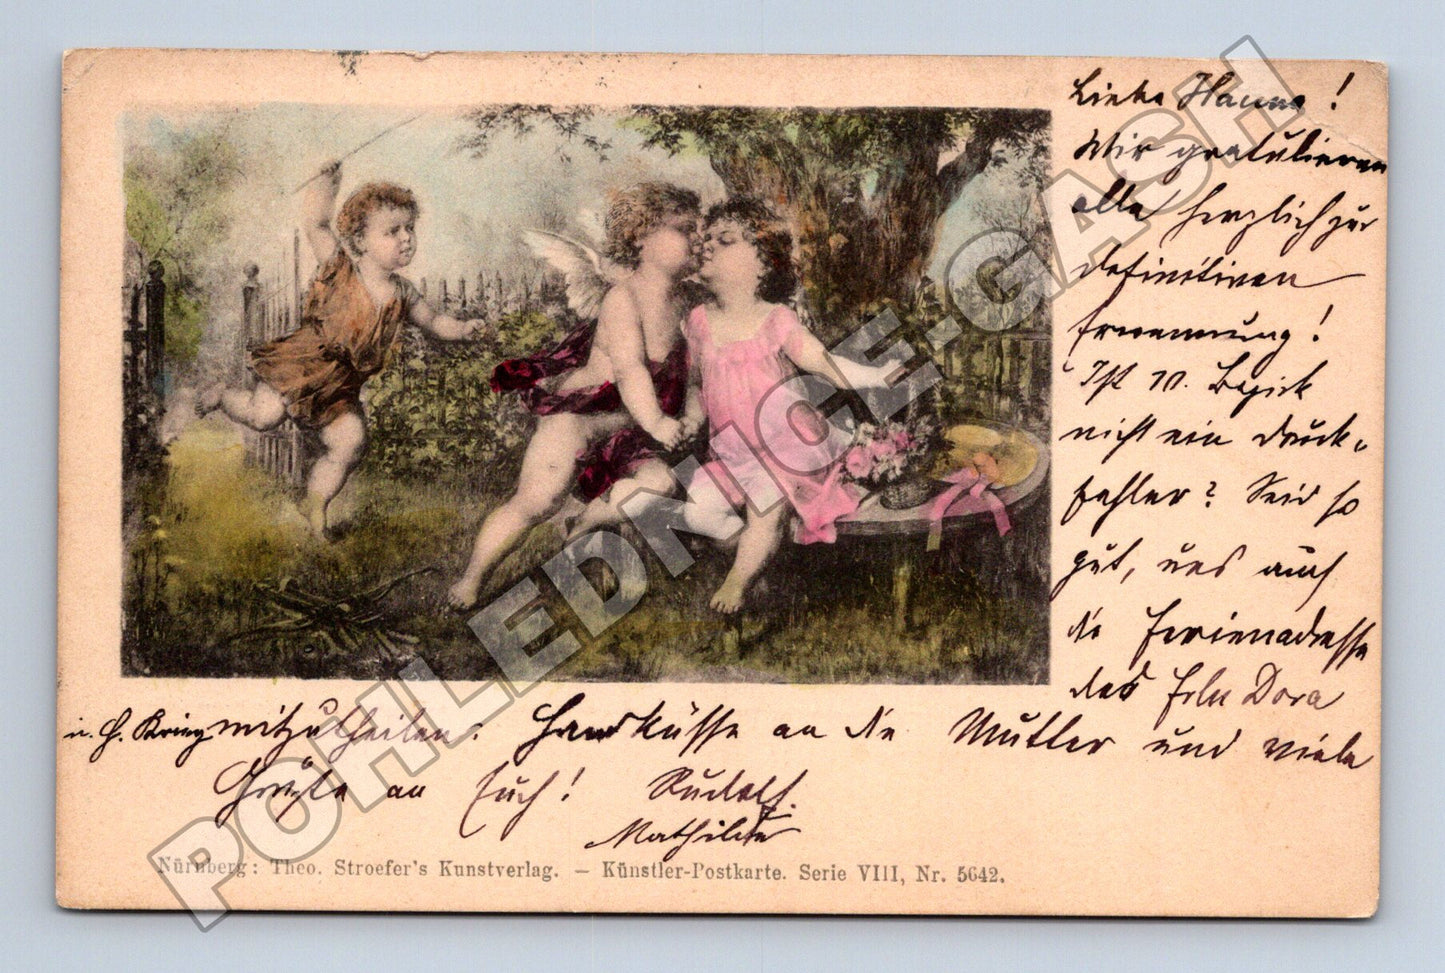 Liebe Hanna!
Wir gratulieren
alle herzlich zur
definitiven
Ernennung!
Ist 10. Bezirk
nicht ein Druck-
fehler? Seid so
gut, uns auch
die Ferienadresse
des Frln Dora
u. H. mitzutheilen. Handküsse an die Mutter und viele
Grüße an Euch! Rudolf.
Mathilde
Nürnberg: Theo. Stroefer's Kunstverlag. — Künstler-Postkarte. Serie VIII, Nr. 5642.
POHLEDNICE-GASH